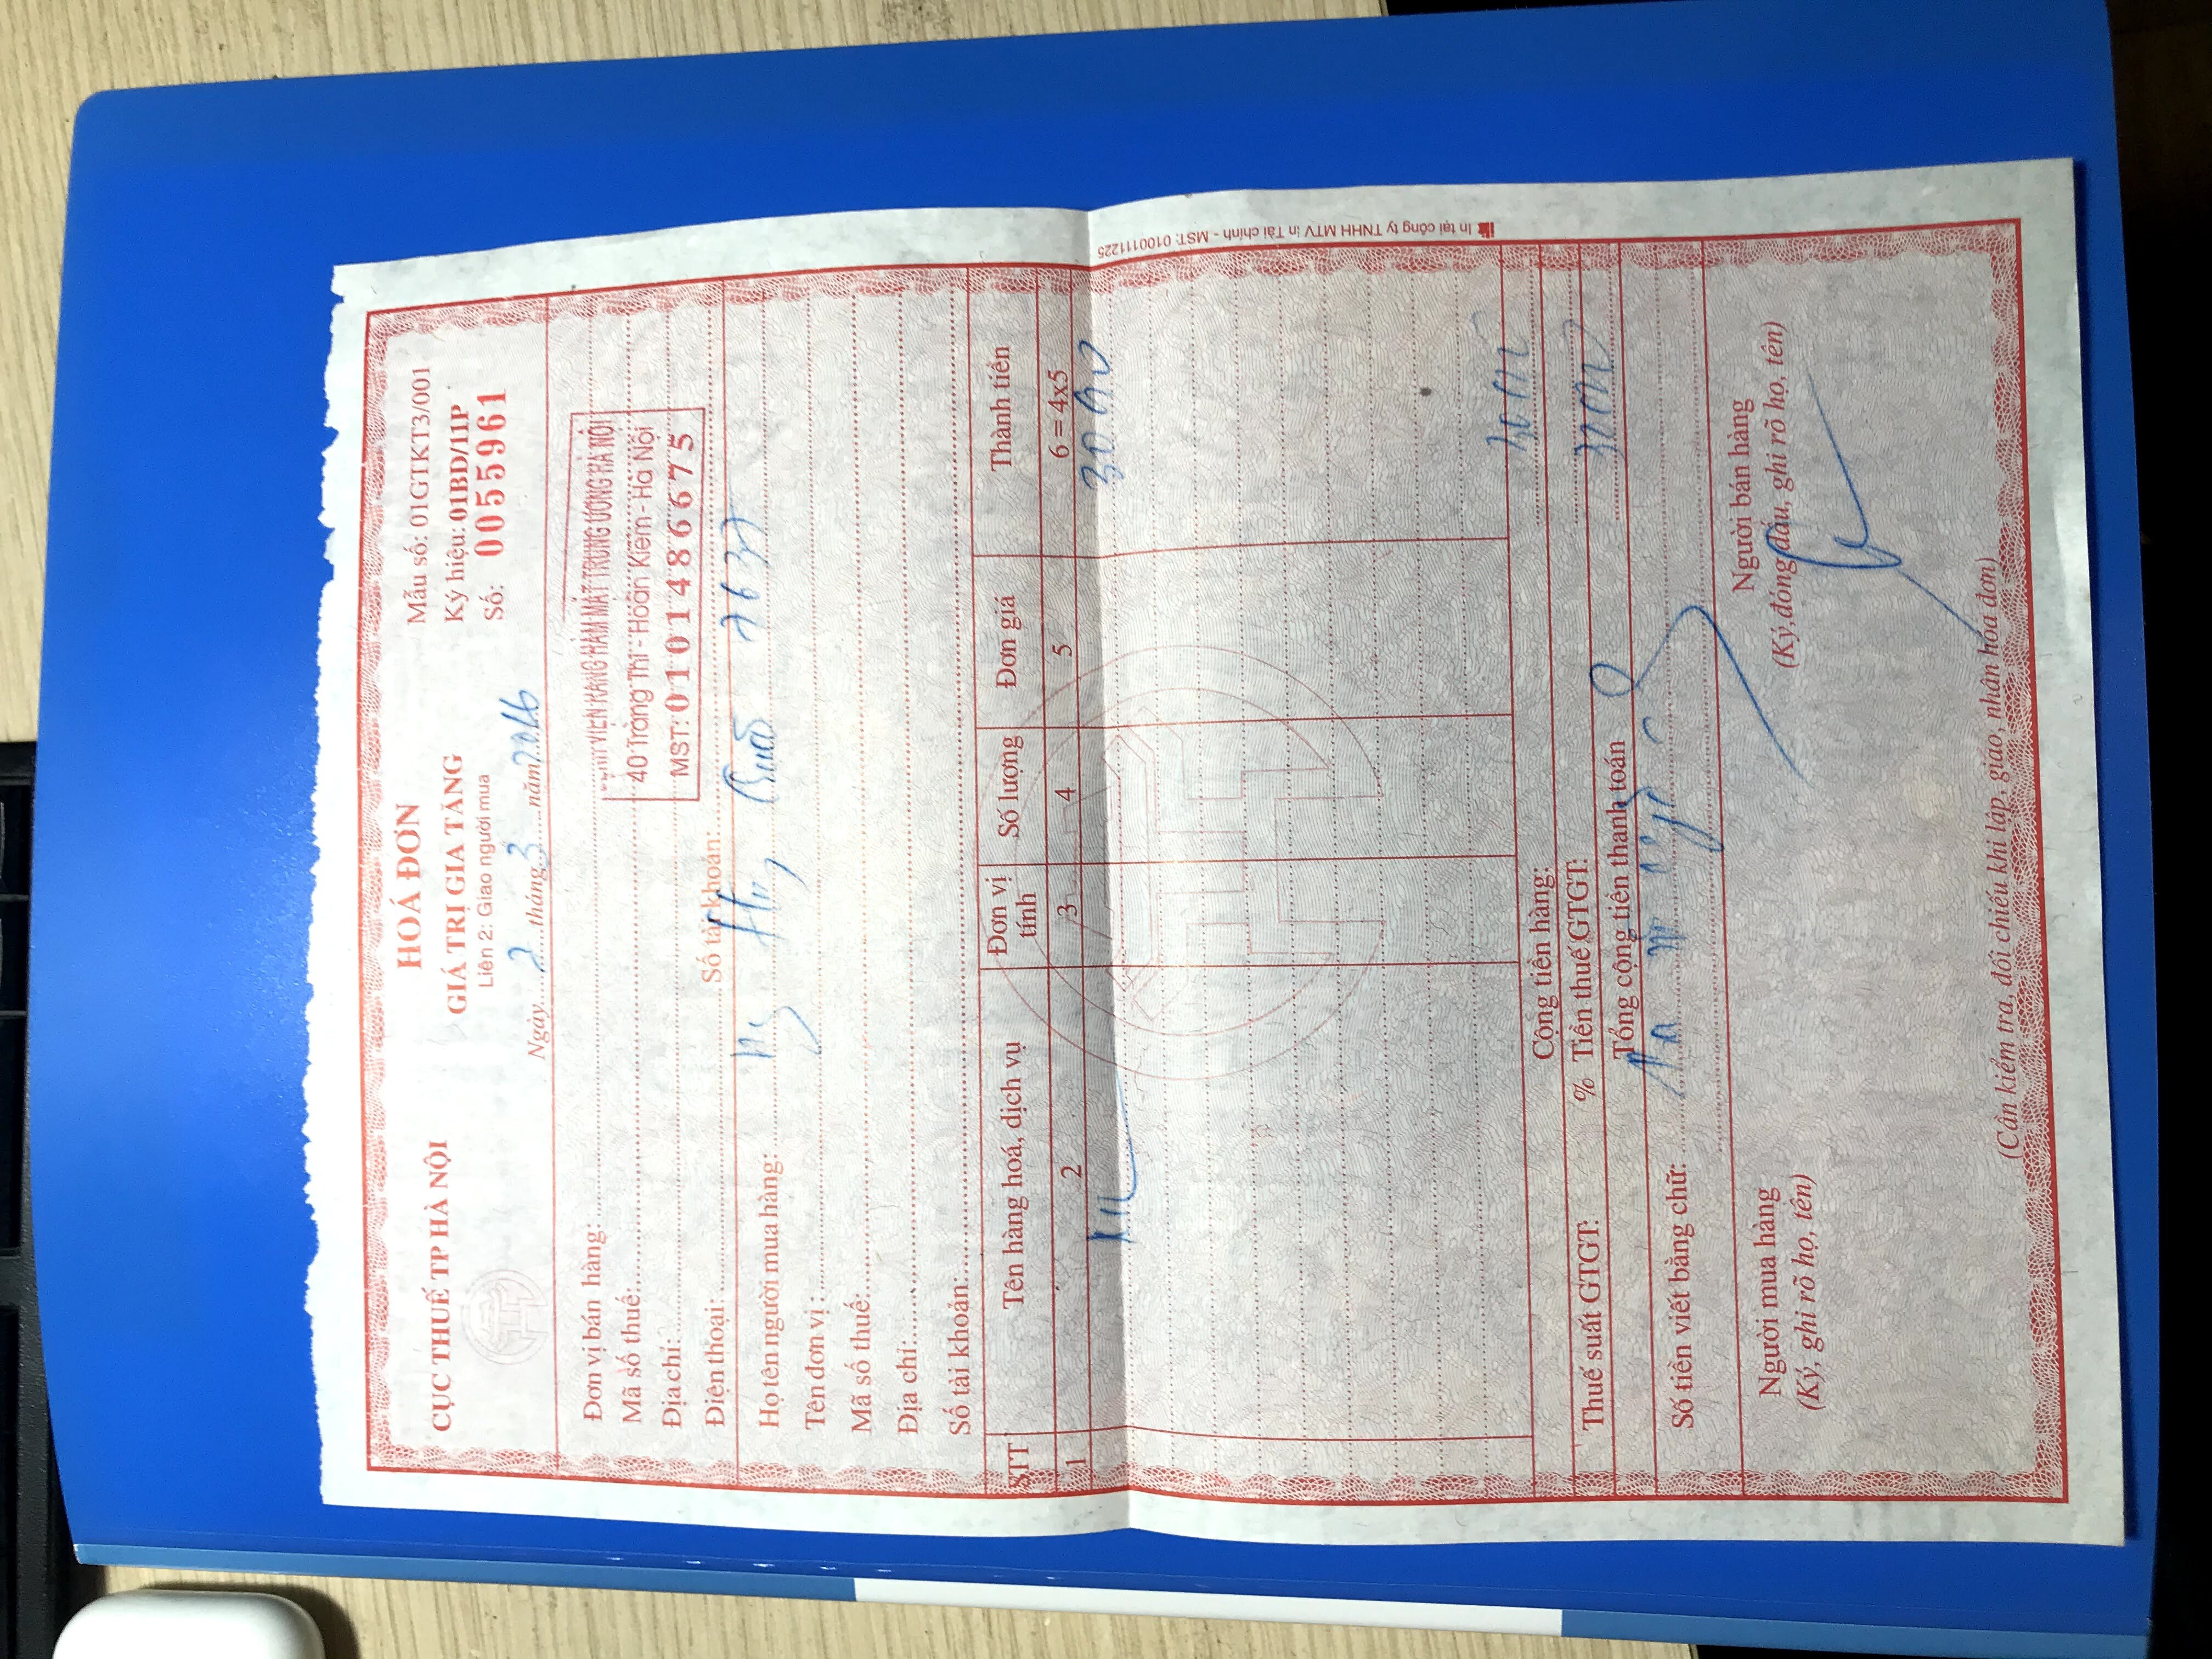 CỤC THUẾ TP HÀ NỘI
HOÁ ĐƠN
GIÁ TRỊ GIA TĂNG
Liên 2: Giao người mua
Ngày 2 tháng 3 năm 2016
Mẫu số: 01GTKT3/001
Ký hiệu: 01BD/11P
Số: 0055961
Đơn vị bán hàng:
Mã số thuế:
Địa chỉ:
Điện thoại: Số tài khoản:
BỆNH VIỆN RĂNG HÀM MẶT TRUNG ƯƠNG HÀ NỘI
40 Tràng Thi - Hoàn Kiếm - Hà Nội
MST: 0101486675
Họ tên người mua hàng: 7637
Tên đơn vị :
Mã số thuế:
Địa chỉ:
Số tài khoản:
STT Tên hàng hoá, dịch vụ Đơn vị tính Số lượng Đơn giá Thành tiền
1 2 3 4 5 6 = 4x5
Cộng tiền hàng:
Thuế suất GTGT: % Tiền thuế GTGT:
Tổng cộng tiền thanh toán
Số tiền viết bằng chữ:
Người mua hàng
(Ký, ghi rõ họ, tên)
Người bán hàng
(Ký,đóng dấu, ghi rõ họ, tên)
(Cần kiểm tra, đối chiếu khi lập, giao, nhận hóa đơn)
In tại công ty TNHH MTV In Tài chính - MST: 0100111225